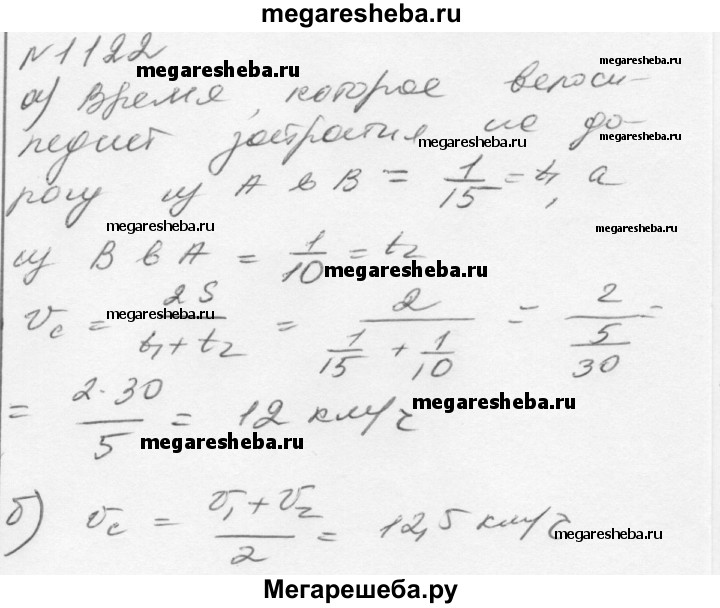 megaresheba.ru
N 1122
megaresheba.ru
megaresheba.ru
а) Время, которое велоси-
педист затратил на до-
megaresheba.ru
megaresheba.ru
рогу из A в B = 1/15 = t₁, а
megaresheba.ru
megaresheba.ru
из B в A = 1/10 = t₂
megaresheba.ru
megaresheba.ru
vc = 2S/(t₁+t₂) = 2/(1/15 + 1/10) = 2/(5/30) =
megaresheba.ru
= 2·30/5 = 12 км/ч
megaresheba.ru
megaresheba.ru
б) vc = (v₁+v₂)/2 = 12,5 км/ч
megaresheba.ru
Мегарешеба.ру